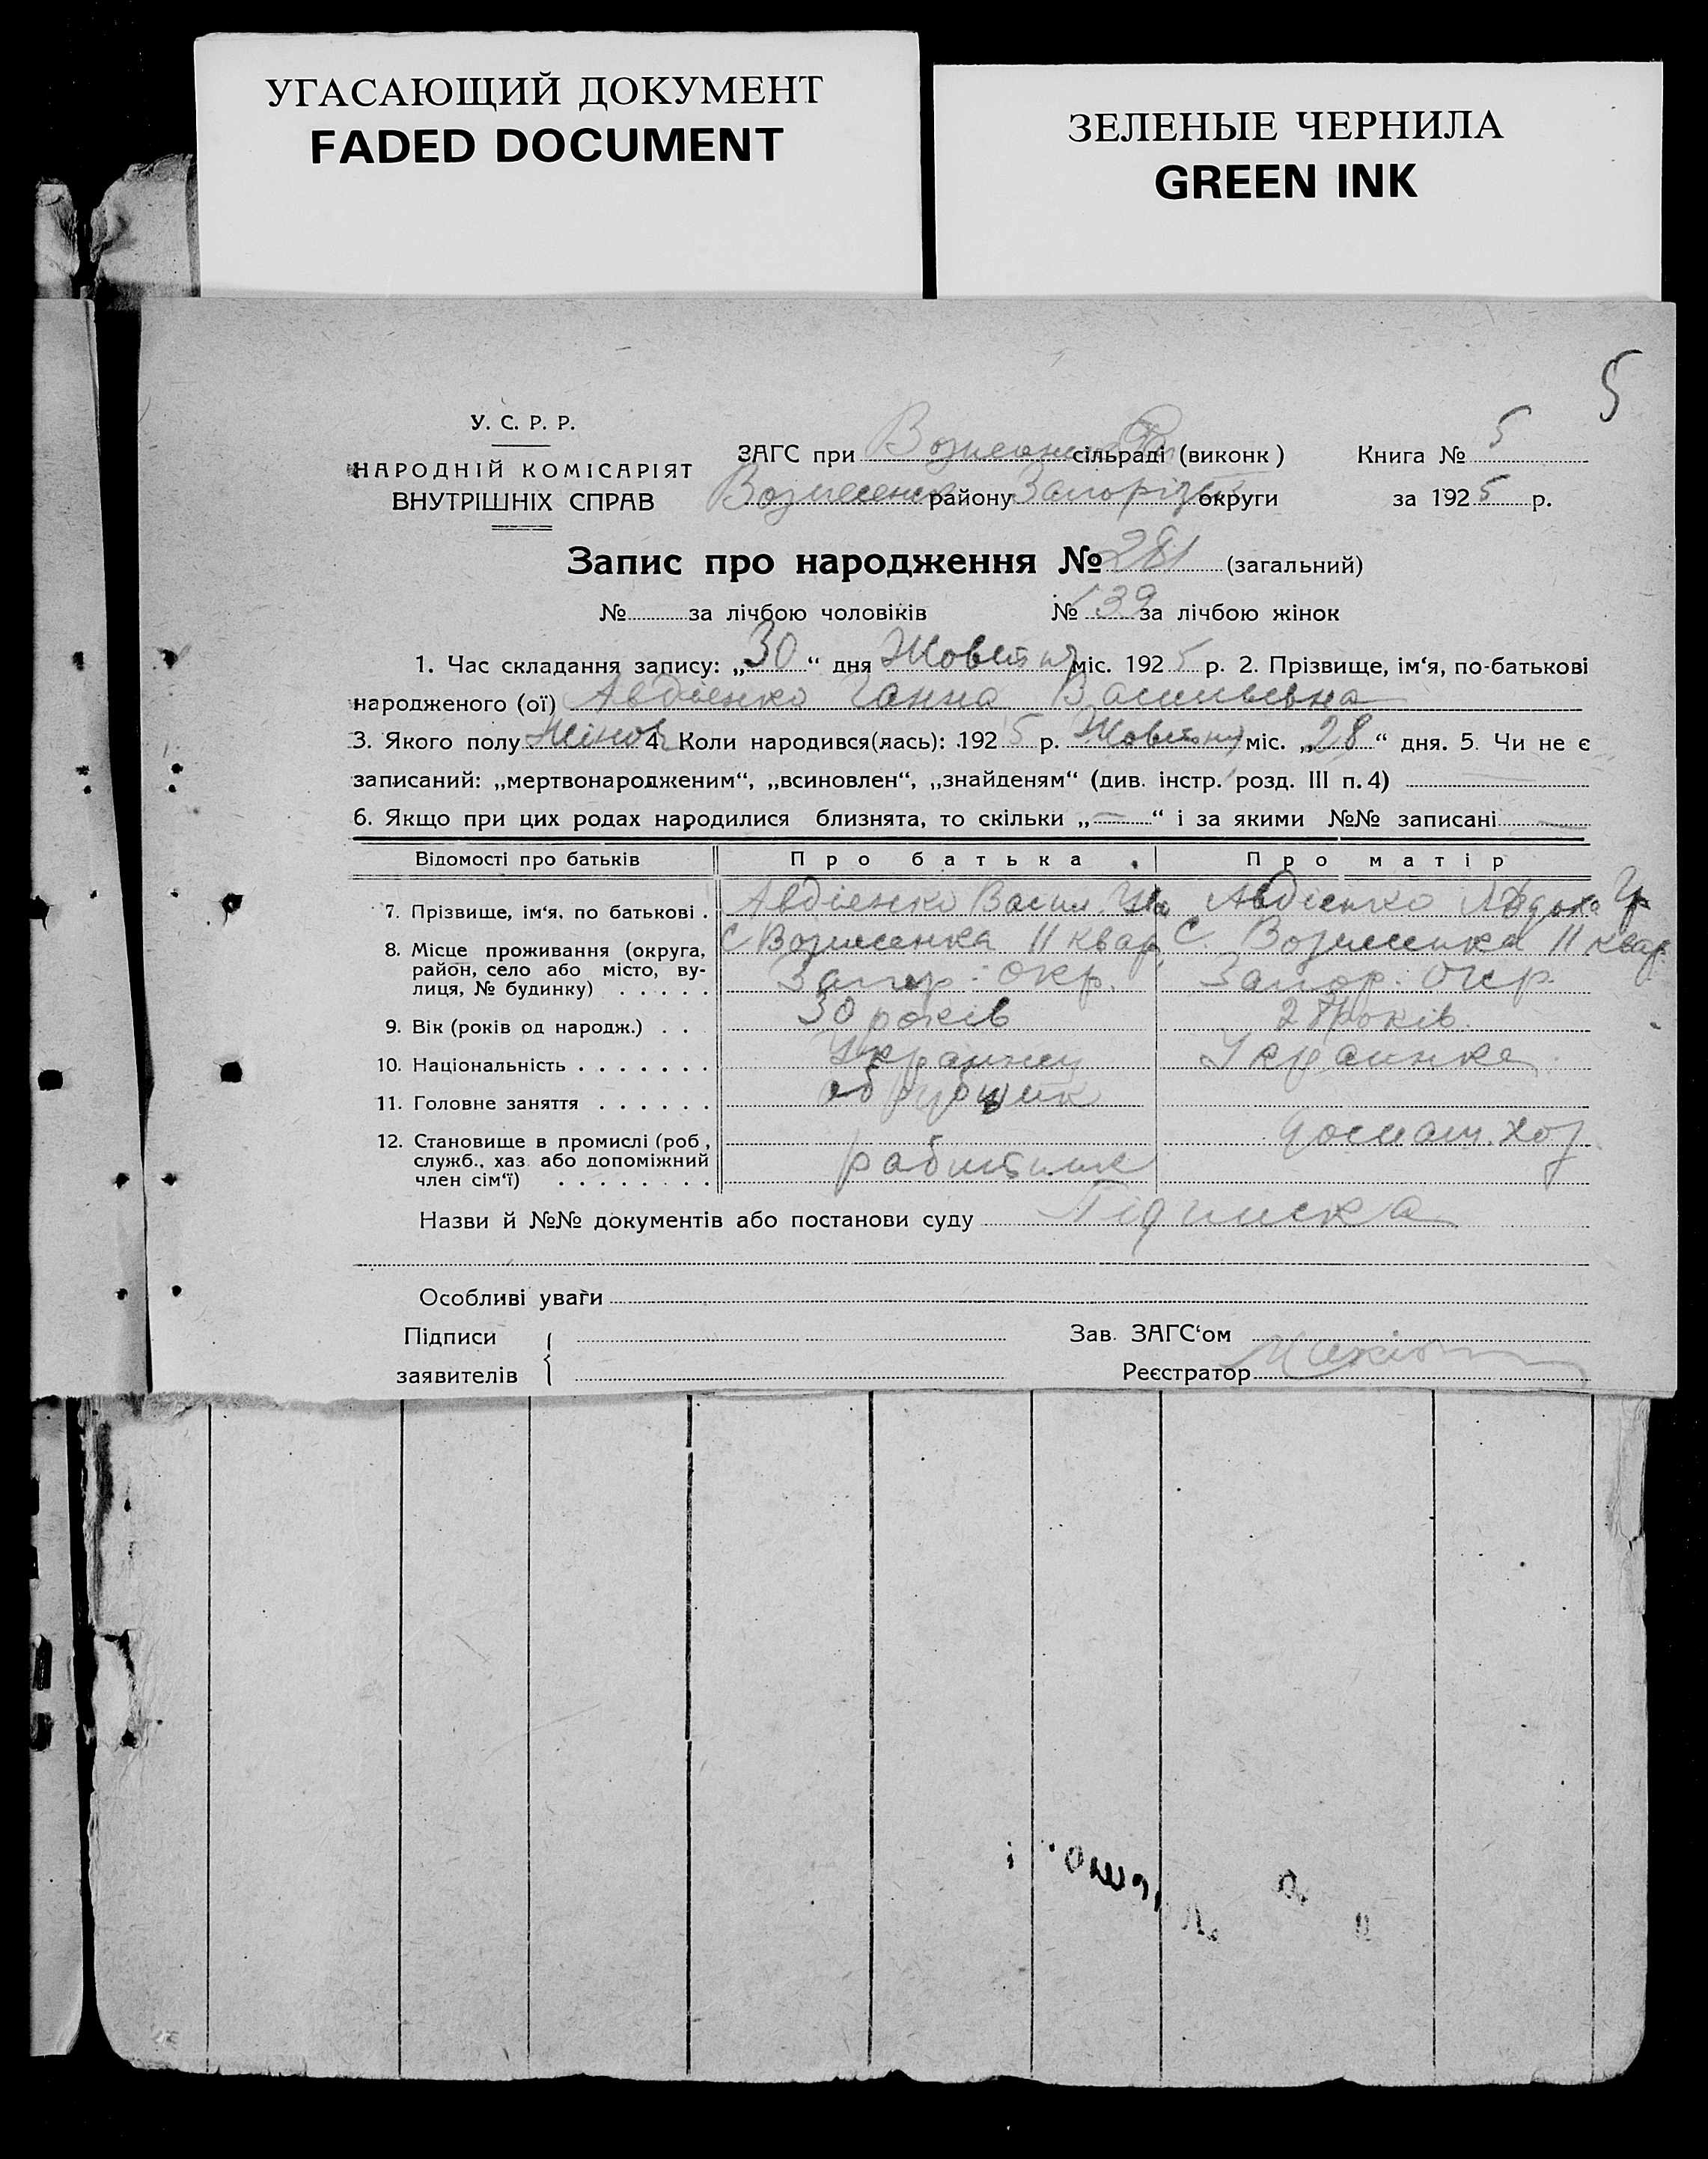 УГАСАЮЩИЙ ДОКУМЕНТ
FADED DOCUMENT
ЗЕЛЕНЫЕ ЧЕРНИЛА
GREEN INK
5
У. С. Р. Р.
НАРОДНІЙ КОМІСАРІЯТ
ВНУТРІШНІХ СПРАВ
ЗАГС при сільраді (виконк)
району округи
Книга № 5
за 1925 р.
Запис про народження № 281 (загальний)
№ за лічбою чоловіків № 139 за лічбою жінок
1. Час складання запису: „30“ дня Жовтня міс. 1925 р. 2. Прізвище, ім‘я, по-батькові
народженого (ої) Авдіенко Ганна Васильевна
3. Якого полу Жіноч 4. Коли народився(лась): 1925 р. Жовтня міс. „28“ дня. 5. Чи не є
записаний: „мертвонародженим“, „всиновлен“, „знайденям“ (див. інстр. розд. III п. 4)
6. Якщо при цих родах народилися близнята, то скільки „—“ і за якими №№ записані —
Відомості про батьків Про батька Про матір
7. Прізвище, ім‘я, по батькові . Авдіенко Васил. Авдіенко
8. Місце проживання (округа, С. Вознесенка 11 квар. С. Вознесенка 11 квар.
район, село або місто, ву-
лиця, № будинку) . . . . . Запор. Окр. Запор. Окр.
9. Вік (років од народж.) . . 30 років 28 років
10. Національність . . . . . . . Украинец Украинка
11. Головне заняття . . . . . . обрубщик
12. Становище в промислі (роб., домаш. хоз.
служб., хаз. або допоміжний
член сім‘ї) . . . . . . . .
Назви й №№ документів або постанови суду Підписка
Особливі уваги
Підписи
заявителів
Зав. ЗАГС‘ом
Реєстратор